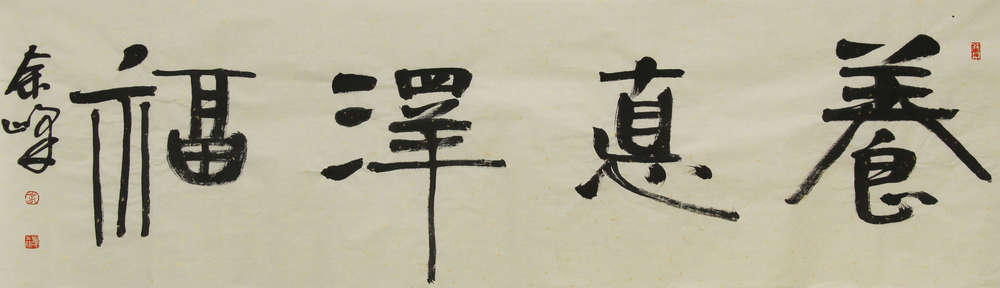 養惪澤福
余峰